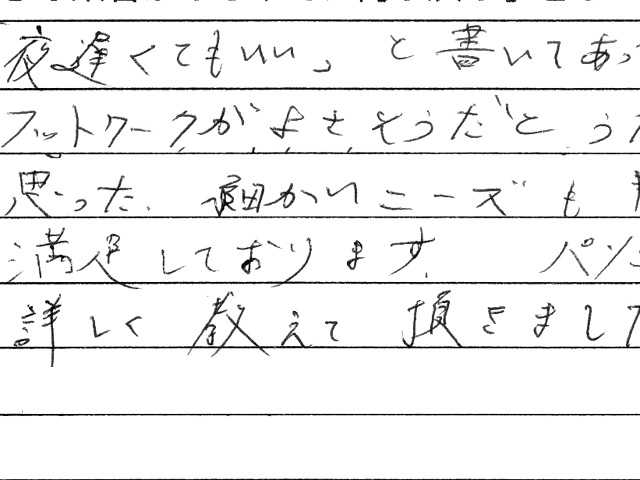 夜遅くてもいい、と書いてあっ
フットワークがよさそうだと う
思った. 細かいニーズも
満足しております. パソ
詳しく教えて損きまし